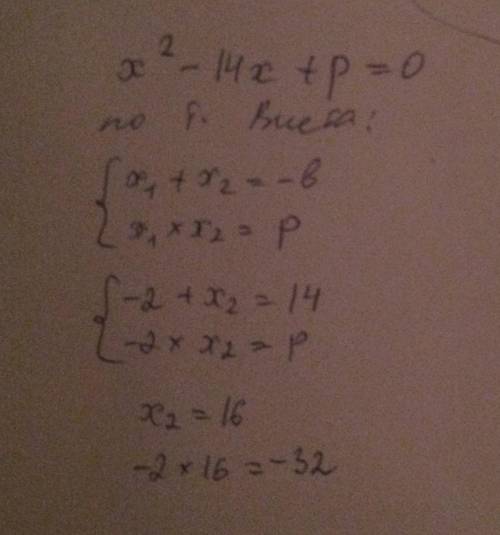 x² - 14x + p = 0
по т. Виета:
{ x₁ + x₂ = -в
{ x₁ × x₂ = p
{ -2 + x₂ = 14
{ -2 × x₂ = p
x₂ = 16
-2 × 16 = -32